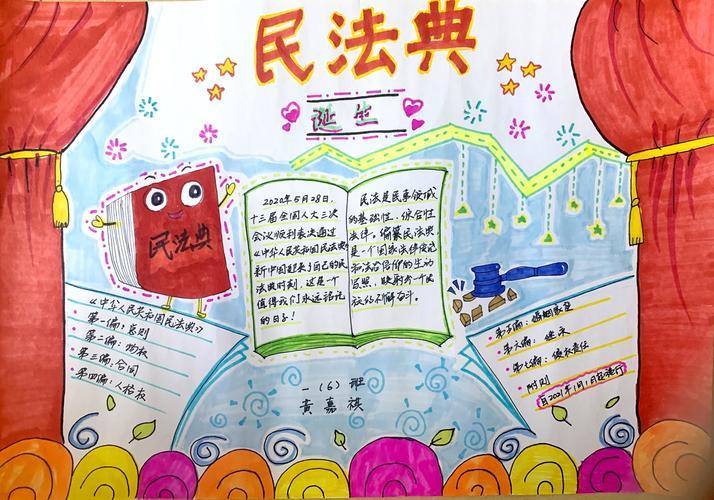 民法典
诞生
民法典
2020年5月28日，
十三届全国人大三次
会议顺利表决通过
《中华人民共和国民法典》
新中国迎来了自己的民
法典时刻，这是一个
值得我们永远铭记
的日子！
民法是民事领域
的基础性、综合性
法律。编纂民法典，
是一个国家法律规范
和法治信仰的生动
写照，映射着一个民
族的不懈奋斗。
《中华人民共和国民法典》
第一编：总则
第二编：物权
第三编：合同
第四编：人格权
第五编：婚姻家庭
第六编：继承
第七编：侵权责任
附则
自2021年1月1日起施行
一（6）班
黄嘉祺